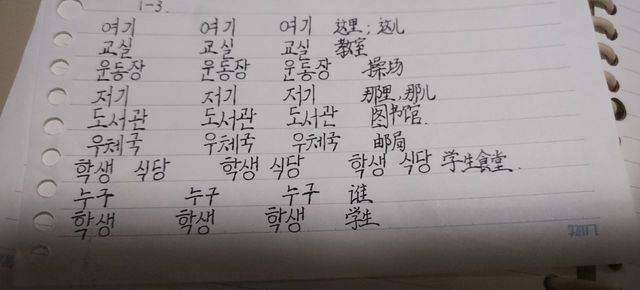 1-3.
여기 여기 여기 这里;这儿
교실 교실 교실 教室
운동장 운동장 운동장 操场
저기 저기 저기 那里,那儿
도서관 도서관 도서관 图书馆.
우체국 우체국 우체국 邮局
학생 식당 학생 식당 학생 식당 学生食堂.
누구 누구 누구 谁
학생 학생 학생 学生